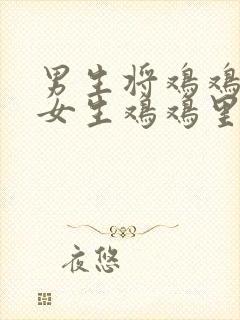 男生将鸡鸡
女生鸡鸡里
夜悠